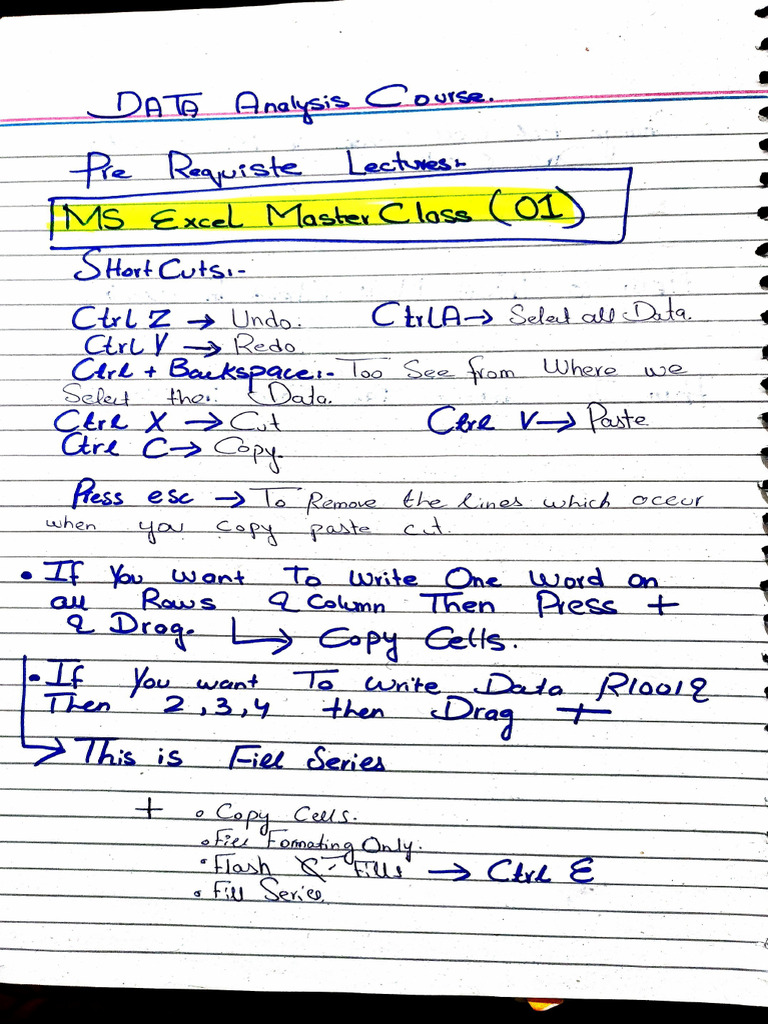 DATA Analysis Course.
Pre Requiste Lectures:-
MS Excel Master Class (01)
Short Cuts:-
Ctrl Z → Undo. Ctrl A → Select all Data.
Ctrl Y → Redo
Ctrl + Backspace:- Too See from Where we
Select the Data.
Ctrl X → Cut Ctrl V → Paste
Ctrl C → Copy.
Press esc → To Remove the lines which occur
when you copy paste cut.
• If You want To write One word on
all Rows & Column Then Press +
& Drag. → Copy Cells.
• If You want To write Data R1001 &
Then 2,3,4 then Drag +
→ This is Fill Series
+ • Copy Cells.
• Fill Formating Only.
• Flash Fills → Ctrl E
• Fill Series